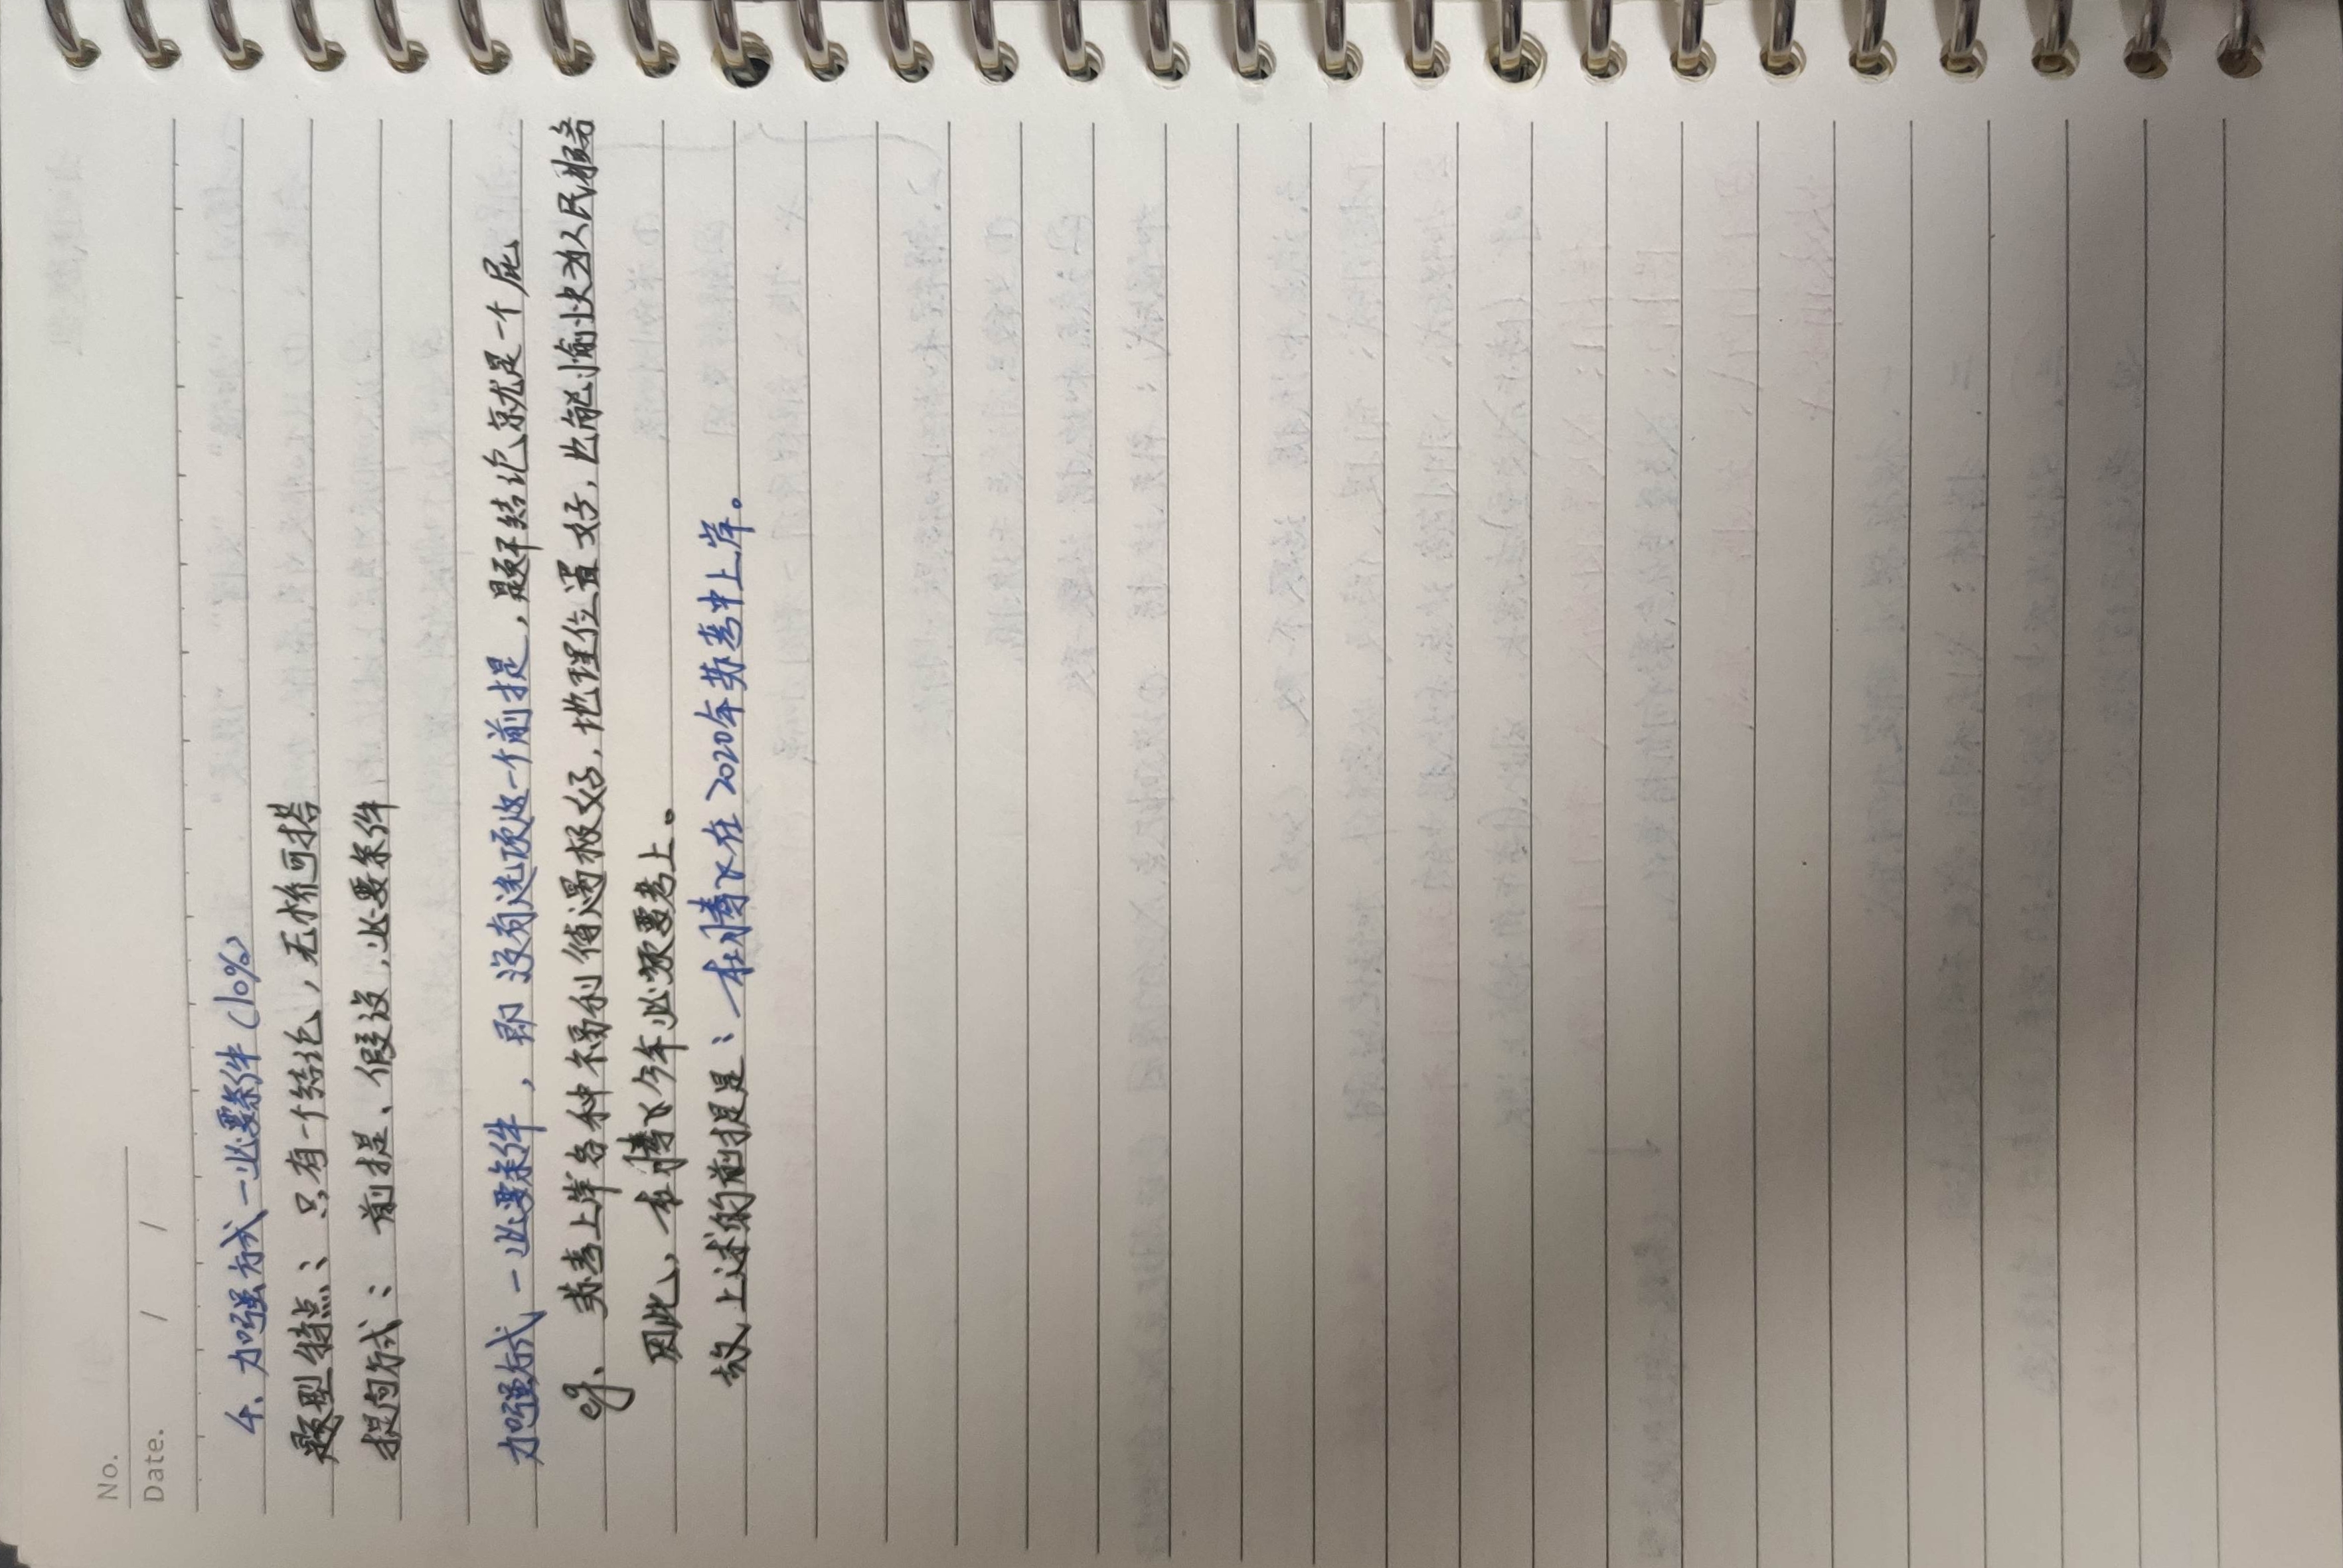 No.
Date. / /
4、加强方式一必要条件（10%）
题型特点：只有一个结论，无桥可搭
提问方式：前提、假设，必要条件
加强方式一必要条件，即没有选项这一个前提，题干结论就是一个屁
eg. 苏考上岸各种福利待遇极好，地理位置好，也能愉快为人民服务
因此，杜腾飞今年必须要考上。
故上述的前提是：杜腾飞在2020年苏考中上岸。